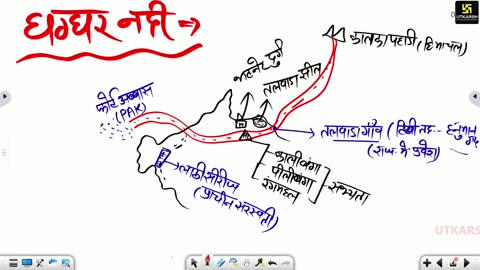 घग्घर नदी ⇒
UTKARSH
कालका पहाड़ी (हिमाचल)
भटनेर दुर्ग
तलवाड़ा झील
फोर्ट अब्बास
(PAK)
तलवाड़ा गाँव (टिब्बी तह. - हनुमानगढ़
(राज. मे प्रवेश)
कालीबंगा
पीलीबंगा
रंगमहल
सभ्यता
लाठी सीरीज
(प्राचीन सरस्वती)
UTKARS